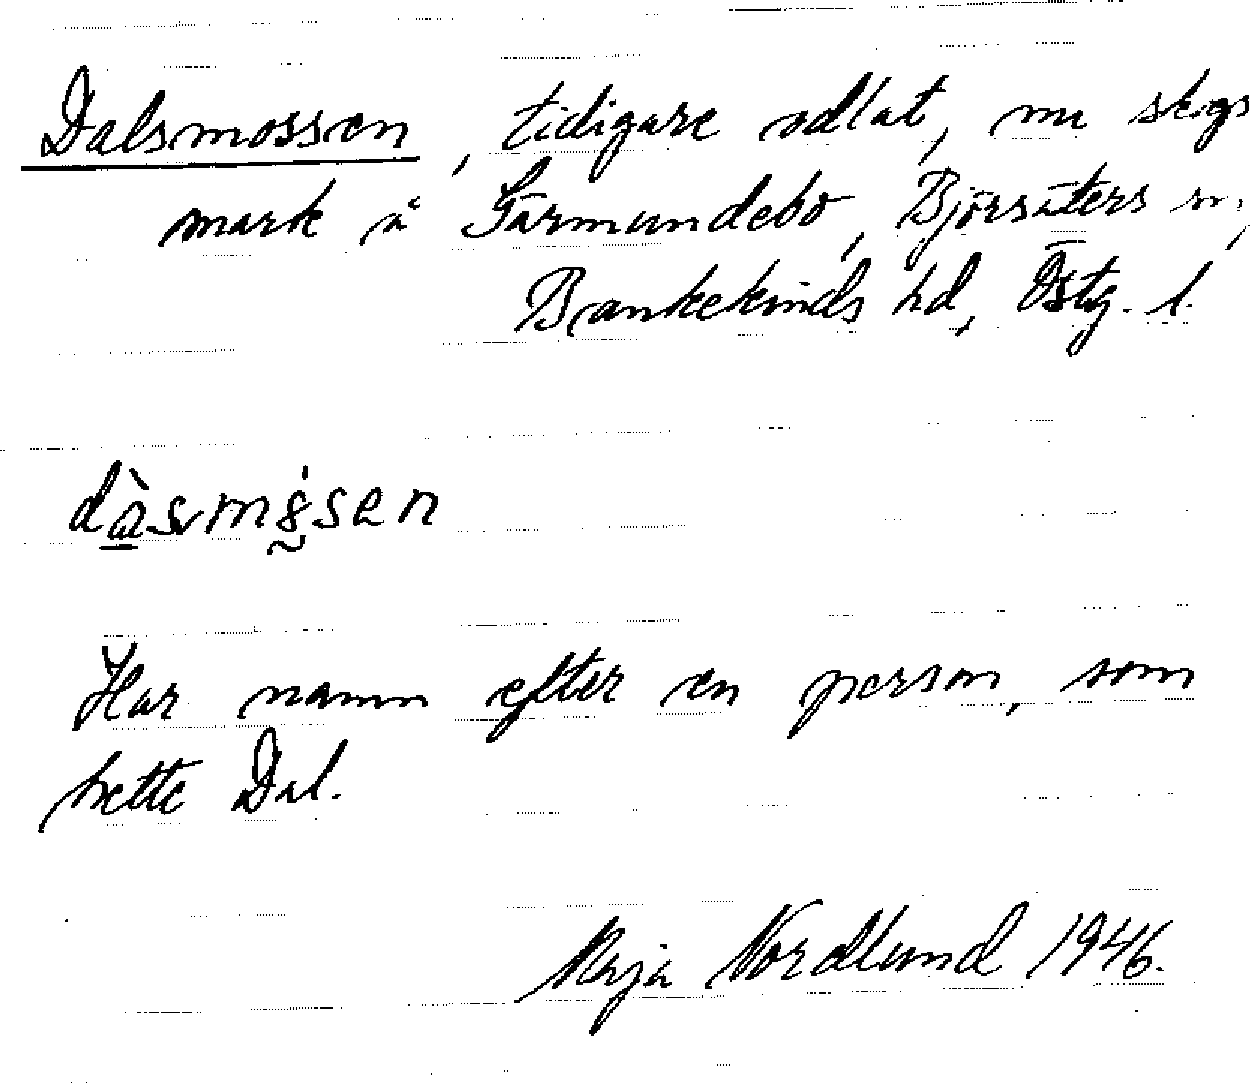 Dalsmossen, tidigare odlat, nu skogs
mark å Särmundebo, Björsäters sn,
Bankekinds hd, Östg. l.
Har namn efter en person, som
hette Dal.
Nordlund 1946.